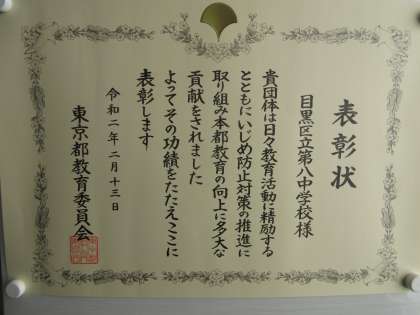 表彰状
目黒区立第八中学校様
貴団体は日々教育活動に精励する
とともにいじめ防止対策の推進に
取り組み本都教育の向上に多大な
貢献をされました
よってその功績をたたえここに
表彰します
令和二年二月十三日
東京都教育委員会